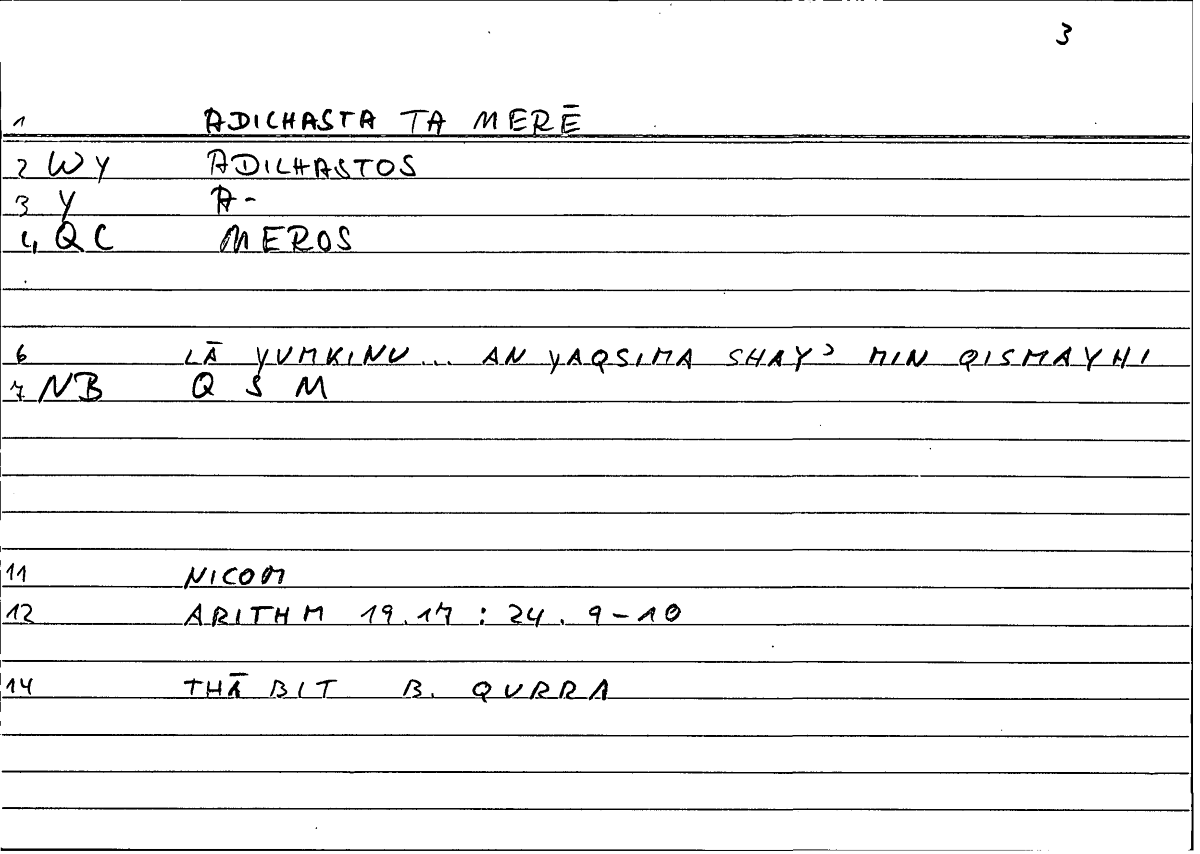 3
1 ADICHASTA TA MERĒ
2 WY ADICHASTOS
3 Y A-
4 QC MEROS
6 LĀ YUMKINU... AN YAQSIMA SHAYʾ MIN QISMAYHI
7 NB Q S M
11 NICOM
12 ARITHM 19.17 : 24. 9-10
14 THĀBIT B. QURRA